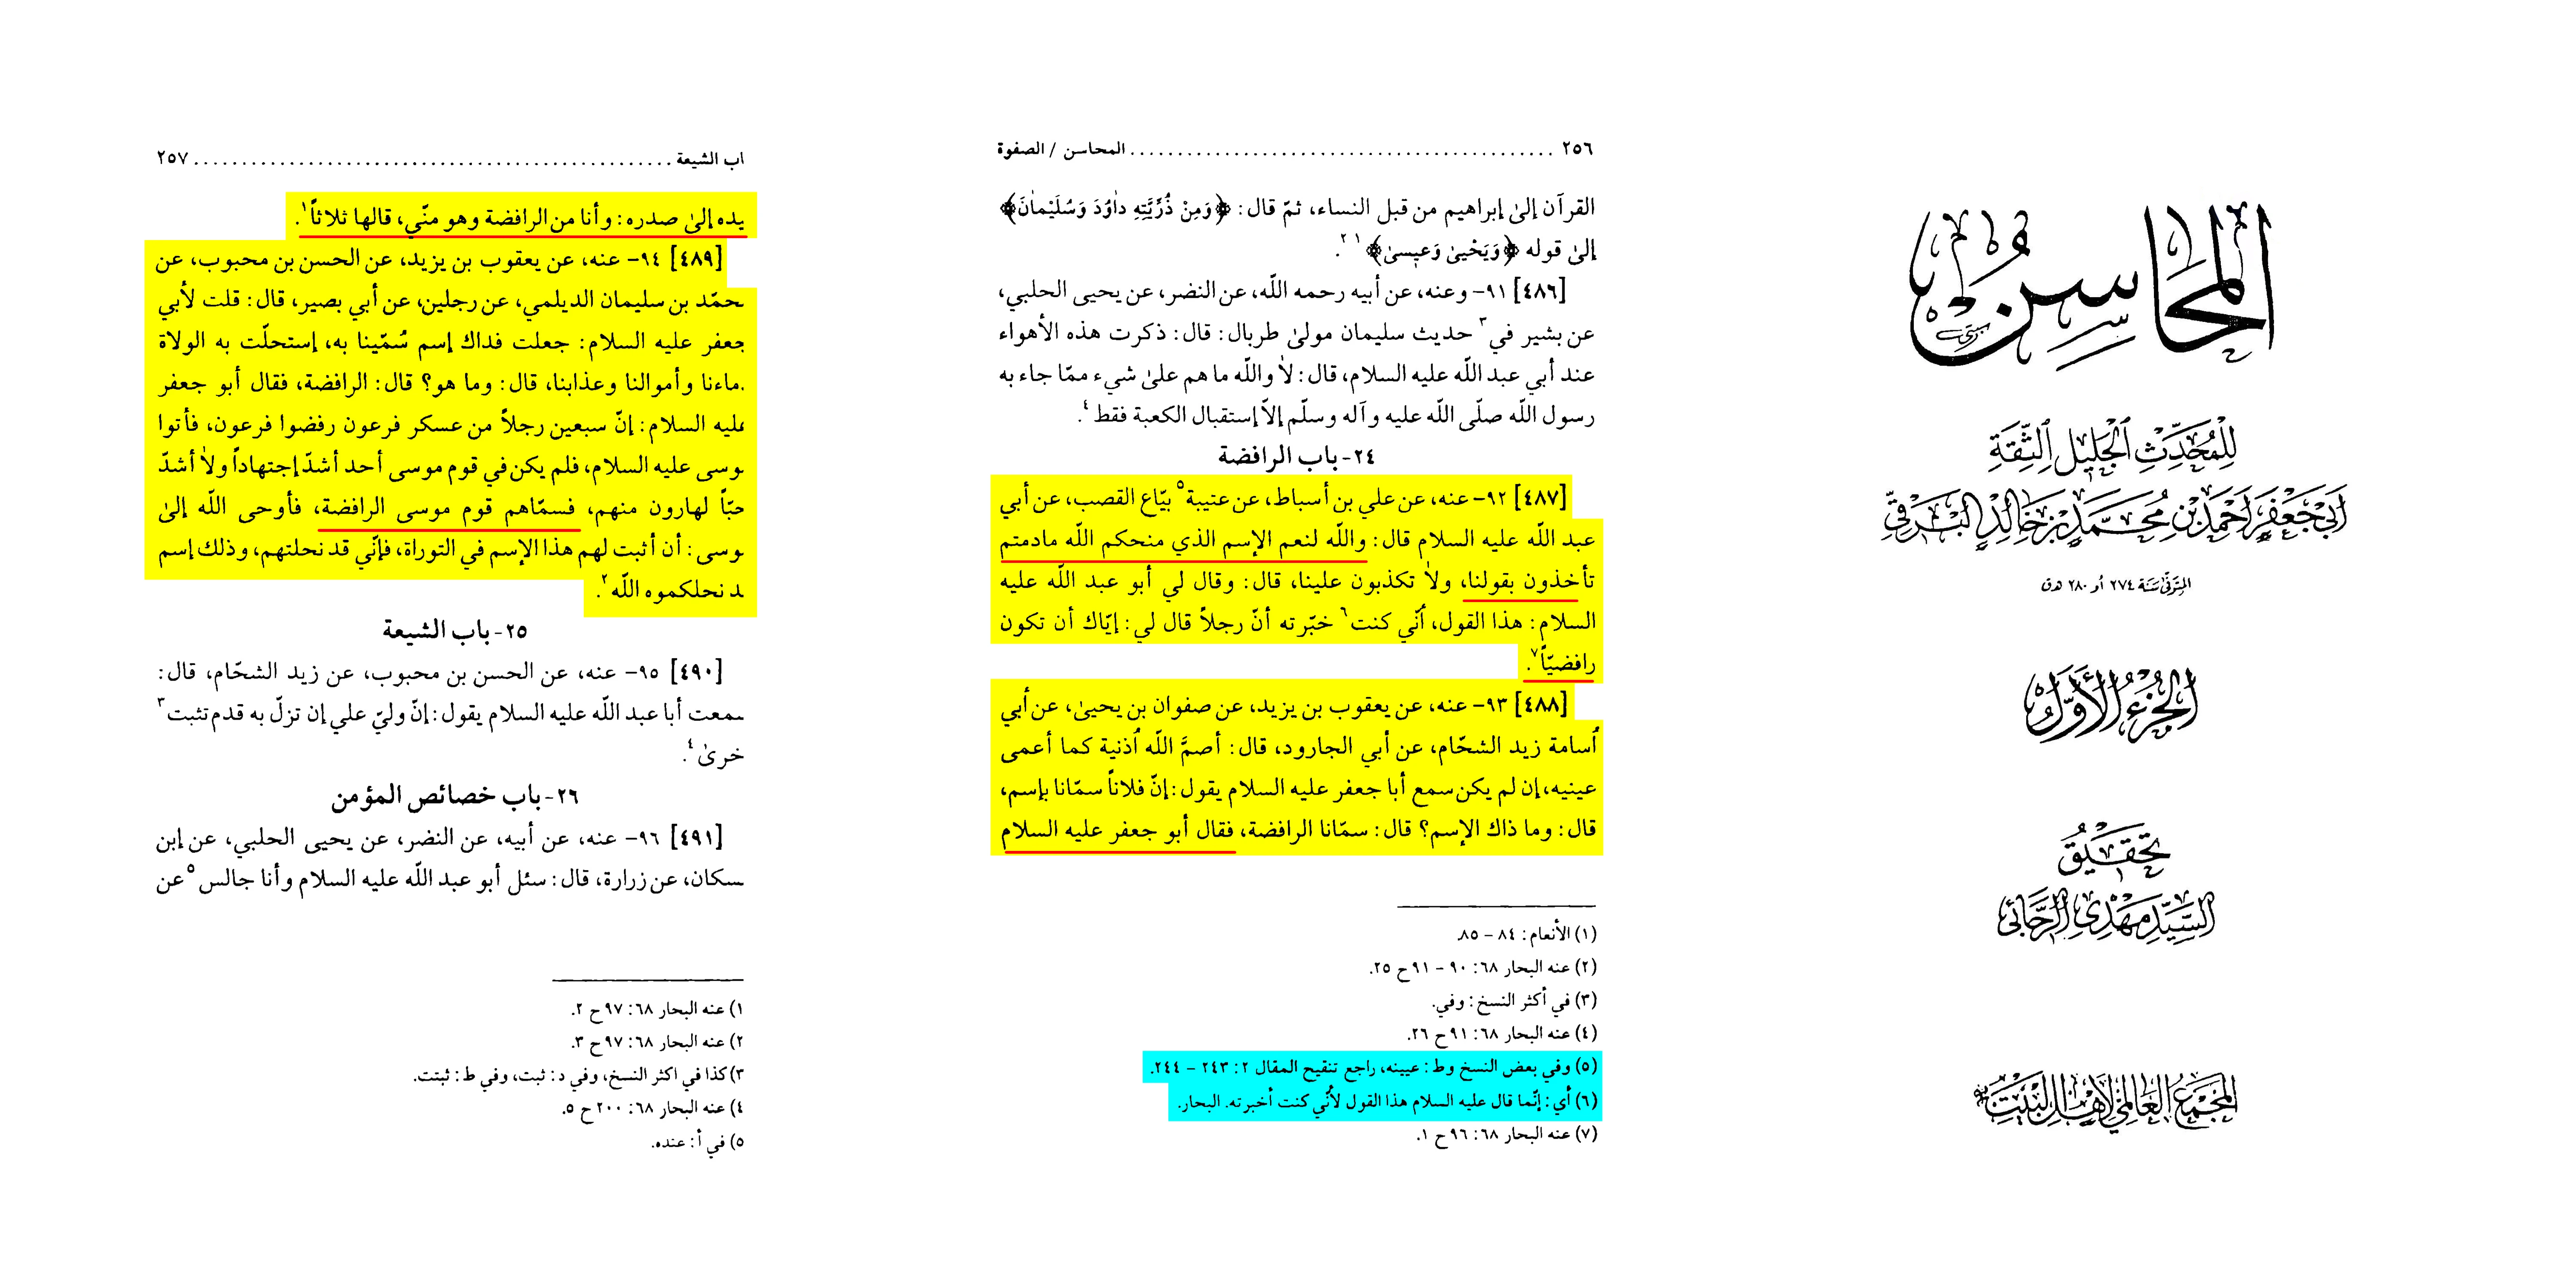 المحاسن
للمحدث الجليل الثقة
أبي جعفر أحمد بن محمد بن خالد البرقي
المتوفى سنة ٢٧٤ أو ٢٨٠ هـ ق
الجزء الأول
تحقيق
السيد مهدي الرجائي
المجمع العالمي لأهل البيت
٢٥٦ ........ المحاسن / الصفوة
القرآن إلىٰ إبراهيم من قبل النساء، ثمّ قال: ﴿وَمِنْ ذُرِّيَّتِهِ دٰاوُدَ وَسُلَيْمٰانَ﴾
إلىٰ قوله ﴿وَيَحْيىٰ وَعِيسىٰ﴾ ١ ٢.
[٤٨٦] ٩١- وعنه، عن أبيه رحمه اللّه، عن النضر، عن يحيى الحلبي،
عن بشير في٣ حديث سليمان مولىٰ طربال: قال: ذكرت هذه الأهواء
عند أبي عبد اللّه عليه السلام، قال: لاٰ واللّه ما هم علىٰ شيء ممّا جاء به
رسول اللّه صلّى اللّه عليه وآله وسلّم إلاّ إستقبال الكعبة فقط٤.
٢٤- باب الرافضة
[٤٨٧] ٩٢- عنه، عن علي بن أسباط، عن عتيبة٥ بيّاع القصب، عن أبي
عبد اللّه عليه السلام قال: واللّه لنعم الإسم الذي منحكم اللّه مادمتم
تأخذون بقولنا، ولاٰ تكذبون علينا، قال: وقال لي أبو عبد اللّه عليه
السلام: هذا القول، أنّي كنت٦ خبّرته أنّ رجلاً قال لي: إيّاك أن تكون
رافضيّاً٧.
[٤٨٨] ٩٣- عنه، عن يعقوب بن يزيد، عن صفوان بن يحيىٰ، عن أبي
اُسامة زيد الشحّام، عن أبي الجارود، قال: أصمَّ اللّه اُذنية كما أعمى
عينيه، إن لم يكن سمع أبا جعفر عليه السلام يقول: إنّ فلاناً سمّانا بإسم،
قال: وما ذاك الإسم؟ قال: سمّانا الرافضة، فقال أبو جعفر عليه السلام
(١) الأنعام: ٨٤ - ٨٥.
(٢) عنه البحار ٦٨: ٩٠ - ٩١ ح ٢٥.
(٣) في أكثر النسخ: وفي.
(٤) عنه البحار ٦٨: ٩١ ح ٢٦.
(٥) وفي بعض النسخ وط: عيينه، راجع تنقيح المقال ٢: ٢٤٣ - ٢٤٤.
(٦) أي: إنّما قال عليه السلام هذا القول لأنّي كنت أخبرته. البحار.
(٧) عنه البحار ٦٨: ٩٦ ح ١.
اب الشيعة ........ ٢٥٧
يده إلىٰ صدره: وأنا من الرافضة وهو منّي، قالها ثلاثاً١.
[٤٨٩] ٩٤- عنه، عن يعقوب بن يزيد، عن الحسن بن محبوب، عن
حمّد بن سليمان الديلمي، عن رجلين، عن أبي بصير، قال: قلت لأبي
جعفر عليه السلام: جعلت فداك إسم سُمّينا به، إستحلّت به الولاة
ماءنا وأموالنا وعذابنا، قال: وما هو؟ قال: الرافضة، فقال أبو جعفر
عليه السلام: إنّ سبعين رجلاً من عسكر فرعون رفضوا فرعون، فأتوا
وسى عليه السلام، فلم يكن في قوم موسى أحد أشدّ إجتهاداً ولاٰ أشدّ
حبّاً لهارون منهم، فسمّاهم قوم موسى الرافضة، فأوحى اللّه إلىٰ
وسى: أن أثبت لهم هذا الإسم في التوراة، فإنّي قد نحلتهم، وذلك إسم
د نحلكموه اللّه٢.
٢٥- باب الشيعة
[٤٩٠] ٩٥- عنه، عن الحسن بن محبوب، عن زيد الشحّام، قال:
سمعت أبا عبد اللّه عليه السلام يقول: إنّ وليّ علي إن تزلّ به قدم تثبت٣
خرىٰ٤.
٢٦- باب خصائص المؤمن
[٤٩١] ٩٦- عنه، عن أبيه، عن النضر، عن يحيى الحلبي، عن إبن
سكان، عن زرارة، قال: سئل أبو عبد اللّه عليه السلام وأنا جالس٥ عن
١) عنه البحار ٦٨: ٩٧ ح ٢.
٢) عنه البحار ٦٨: ٩٧ ح ٣.
٣) كذا في اكثر النسخ، وفي د: ثبت، وفي ط: ثبتت.
٤) عنه البحار ٦٨: ٢٠٠ ح ٥.
٥) في أ: عنده.